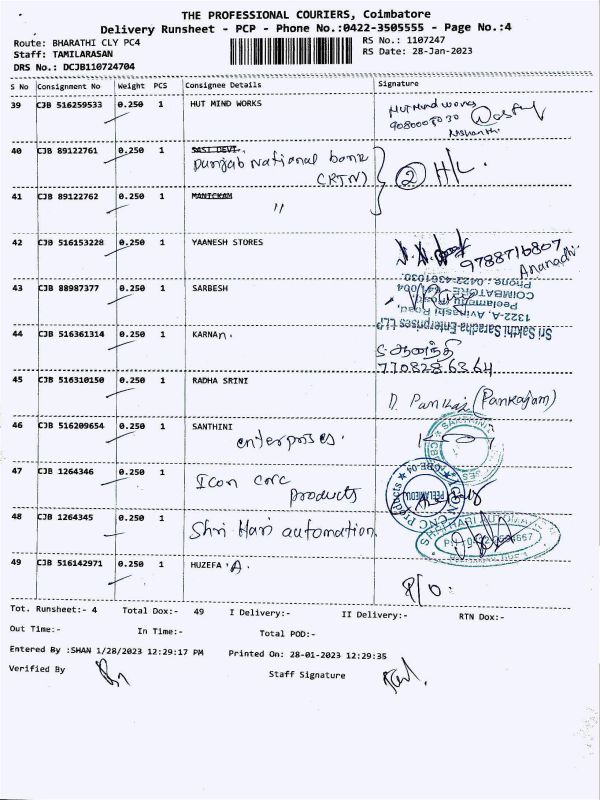 THE PROFESSIONAL COURIERS, Coimbatore
Delivery Runsheet - PCP - Phone No.:0422-3505555 - Page No.:4
Route: BHARATHI CLY PC4
Staff: TAMILARASAN
DRS No.: DCJB110724704
RS No.: 1107247
RS Date: 28-Jan-2023
S No Consignment No Weight PCS Consignee Details Signature
39 CJB 516259533 0.250 1 HUT MIND WORKS
HUT Mind Works
9080008030
Nishanthi
40 CJB 89122761 0.250 1 SASI DEVI
Punjab National bank
(RTN)
2 H/L.
41 CJB 89122762 0.250 1 MANICKAM
"
42 CJB 516153228 0.250 1 YAANESH STORES
9788716807
43 CJB 88987377 0.250 1 SARBESH
Sri Sakthi Saradha Enterprises LLP
1322-A, Avinashi Road,
Peelamedu Post,
COIMBATORE - 641 004
Phone : 0422-4361030.
44 CJB 516361314 0.250 1 KARNAn.
S. ஆனந்தி
7708286364
45 CJB 516310150 0.250 1 RADHA SRINI
D. Pankaj (Pankajam)
46 CJB 516209654 0.250 1 SANTHINI
enterprises.
47 CJB 1264346 0.250 1
Icon cnc
products
ICON CNC Products
PEELAMEDU
48 CJB 1264345 0.250 1
Shri Hari automation.
SHRI HARI AUTOMATION
49 CJB 516142971 0.250 1 HUZEFA 'A.
R/O.
Tot. Runsheet:- 4 Total Dox:- 49 I Delivery:- II Delivery:- RTN Dox:-
Out Time:- In Time:- Total POD:-
Entered By :SHAN 1/28/2023 12:29:17 PM Printed On: 28-01-2023 12:29:35
Verified By Staff Signature